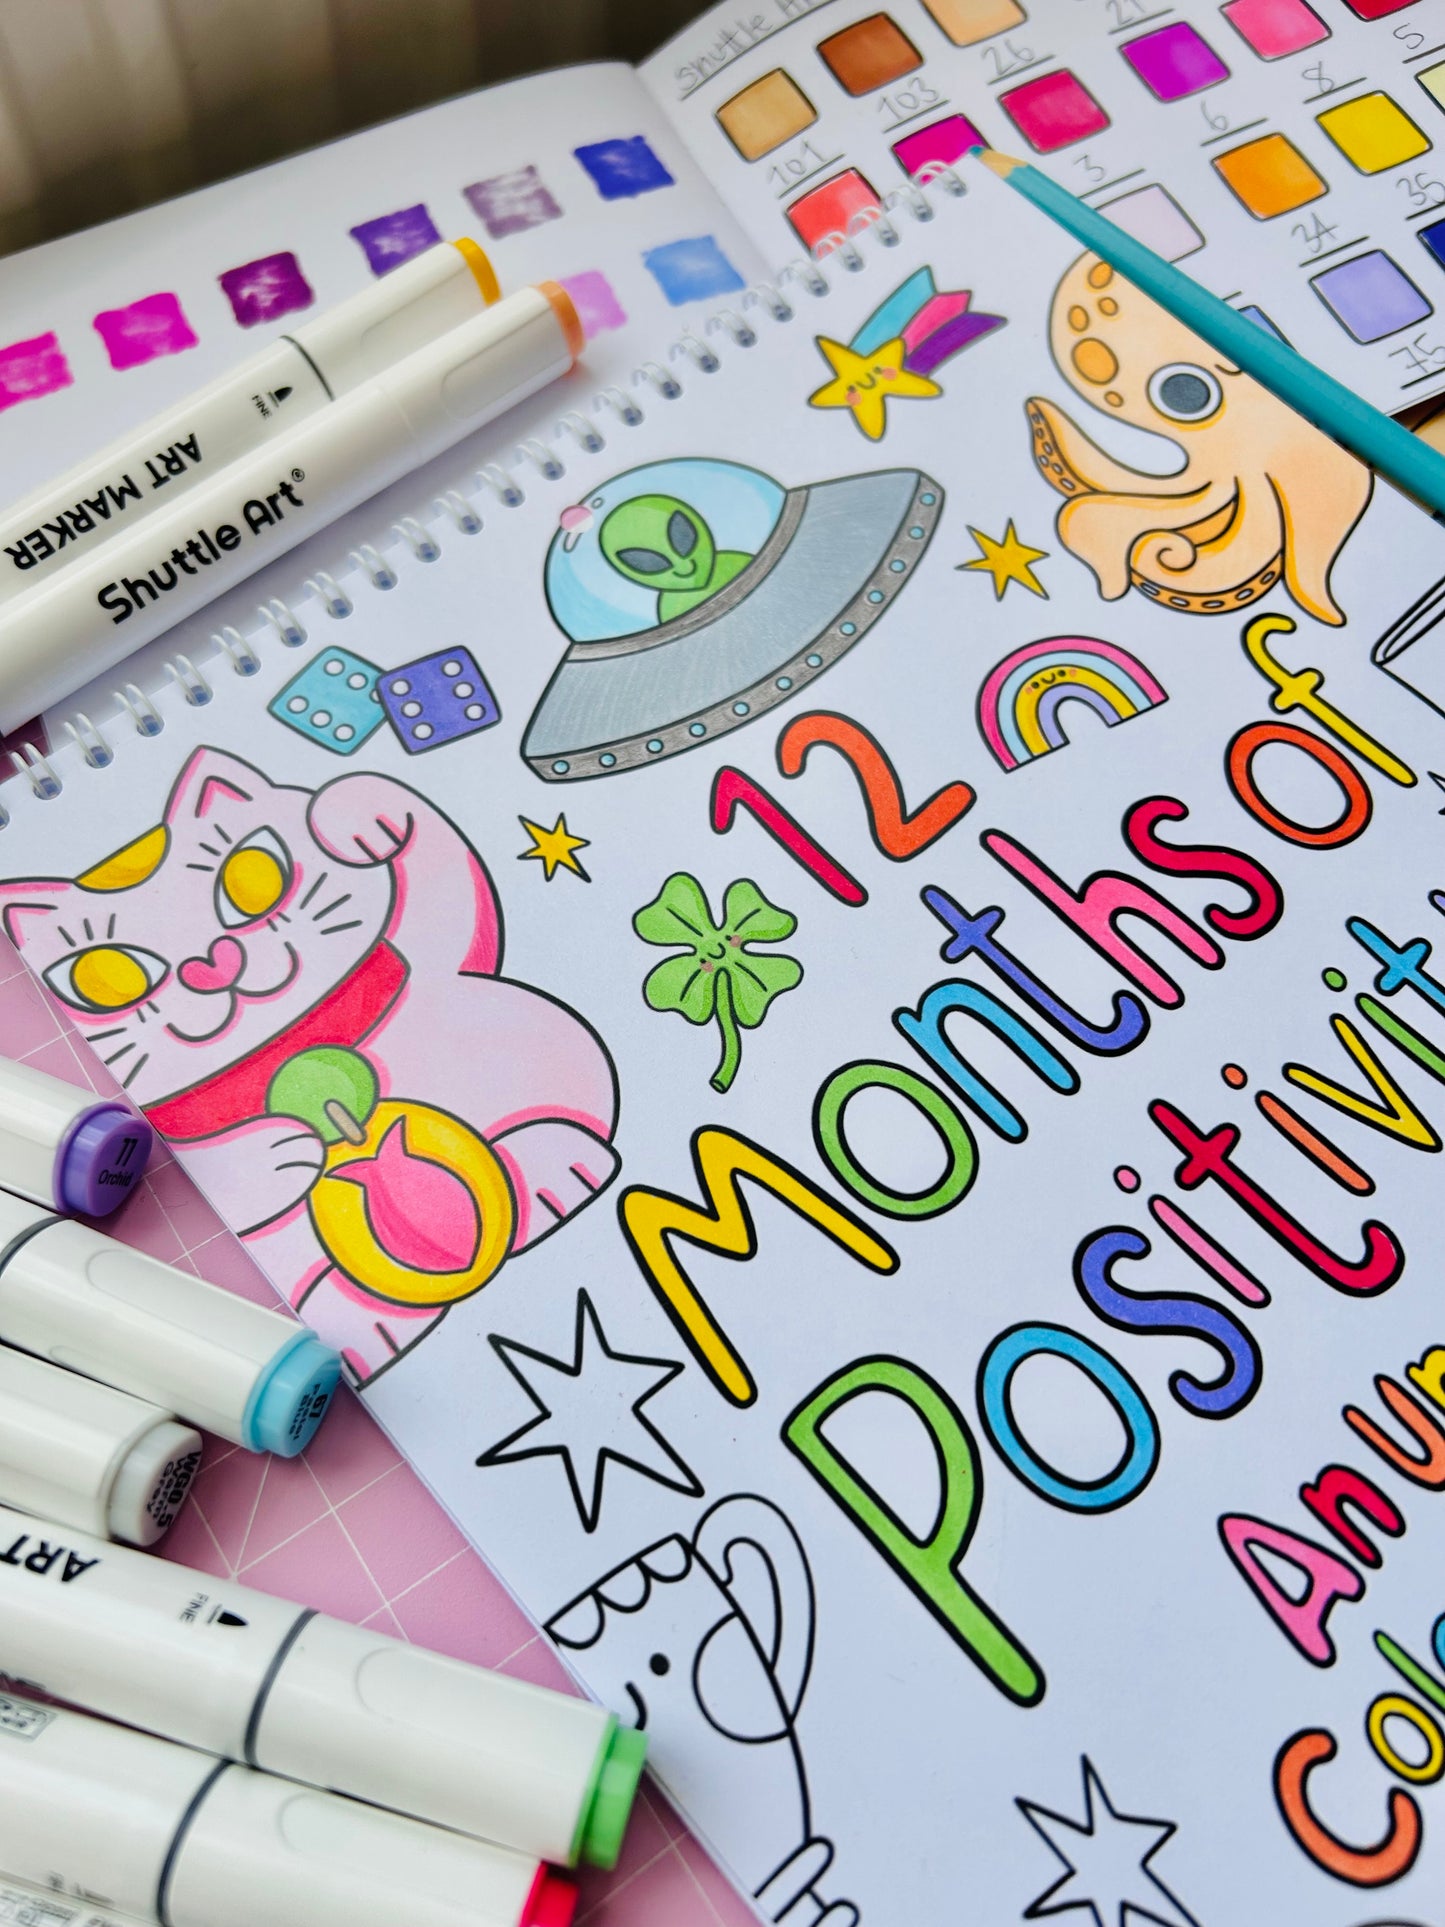 Shuttle Art
21
26
5
103
8
6
101
3
35
34
75
FINE
ART MARKER
Shuttle Art®
12
Months of
Positivit
An un
Colo
C
77
Orchid
67
Pastel
Blue
WG0.5
Warm
Grey
ART
FINE